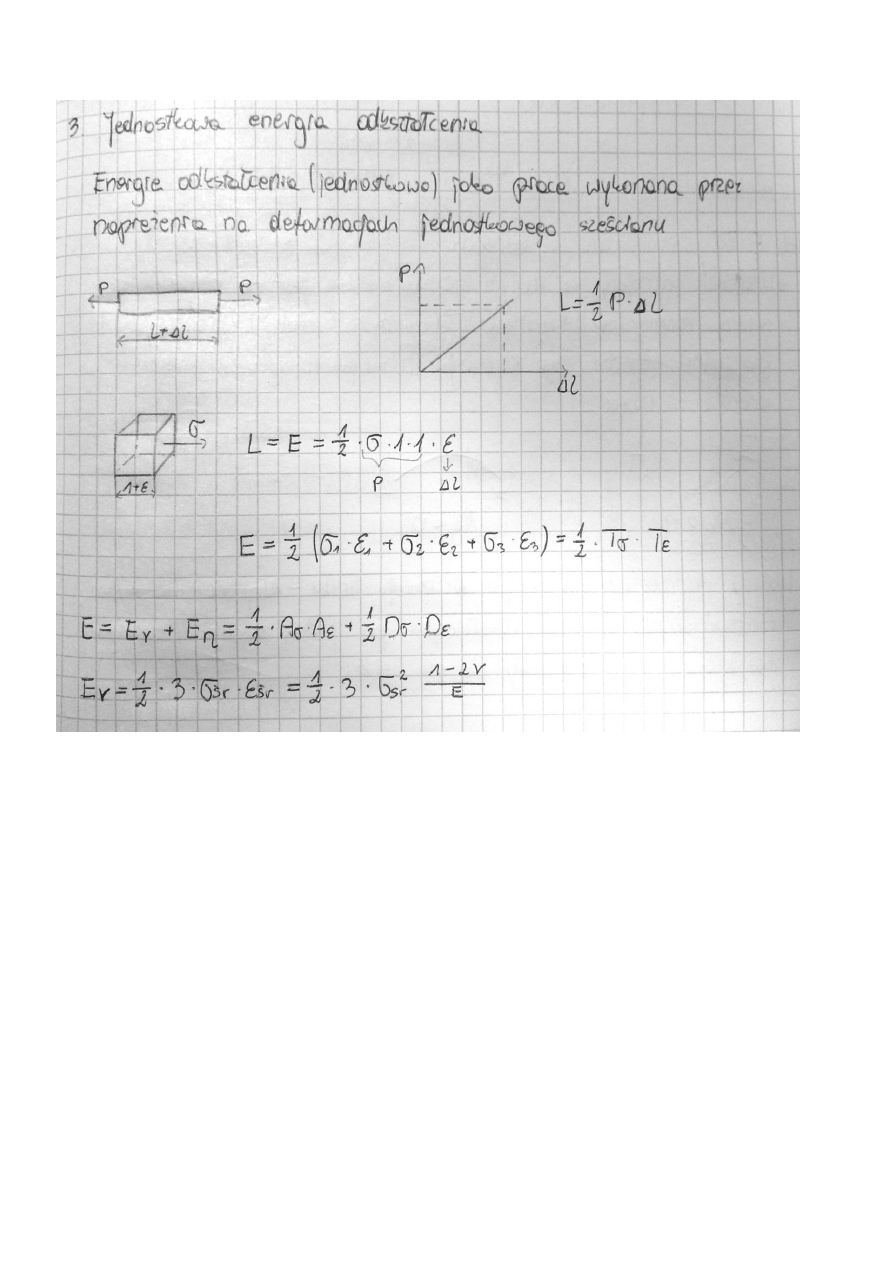 3. Jednostkowa energia odkształcenia
Energie odkształcenia (jednostkowo) jako prace wykonana przez
naprężenia na deformacjach jednostkowego sześcianu
P P
L+Δl
P
Δl
L=1/2 P·Δl
σ
1+ε
L = E = 1/2 · σ·1·1 · ε
P Δl
E = 1/2 (σ₁·ε₁ + σ₂·ε₂ + σ₃·ε₃) = 1/2 · Tσ · Tε
E = Ev + En = 1/2 · Aσ·Aε + 1/2 Dσ·Dε
Ev = 1/2 · 3 · σśr · εśr = 1/2 · 3 · σśr² (1-2ν)/E